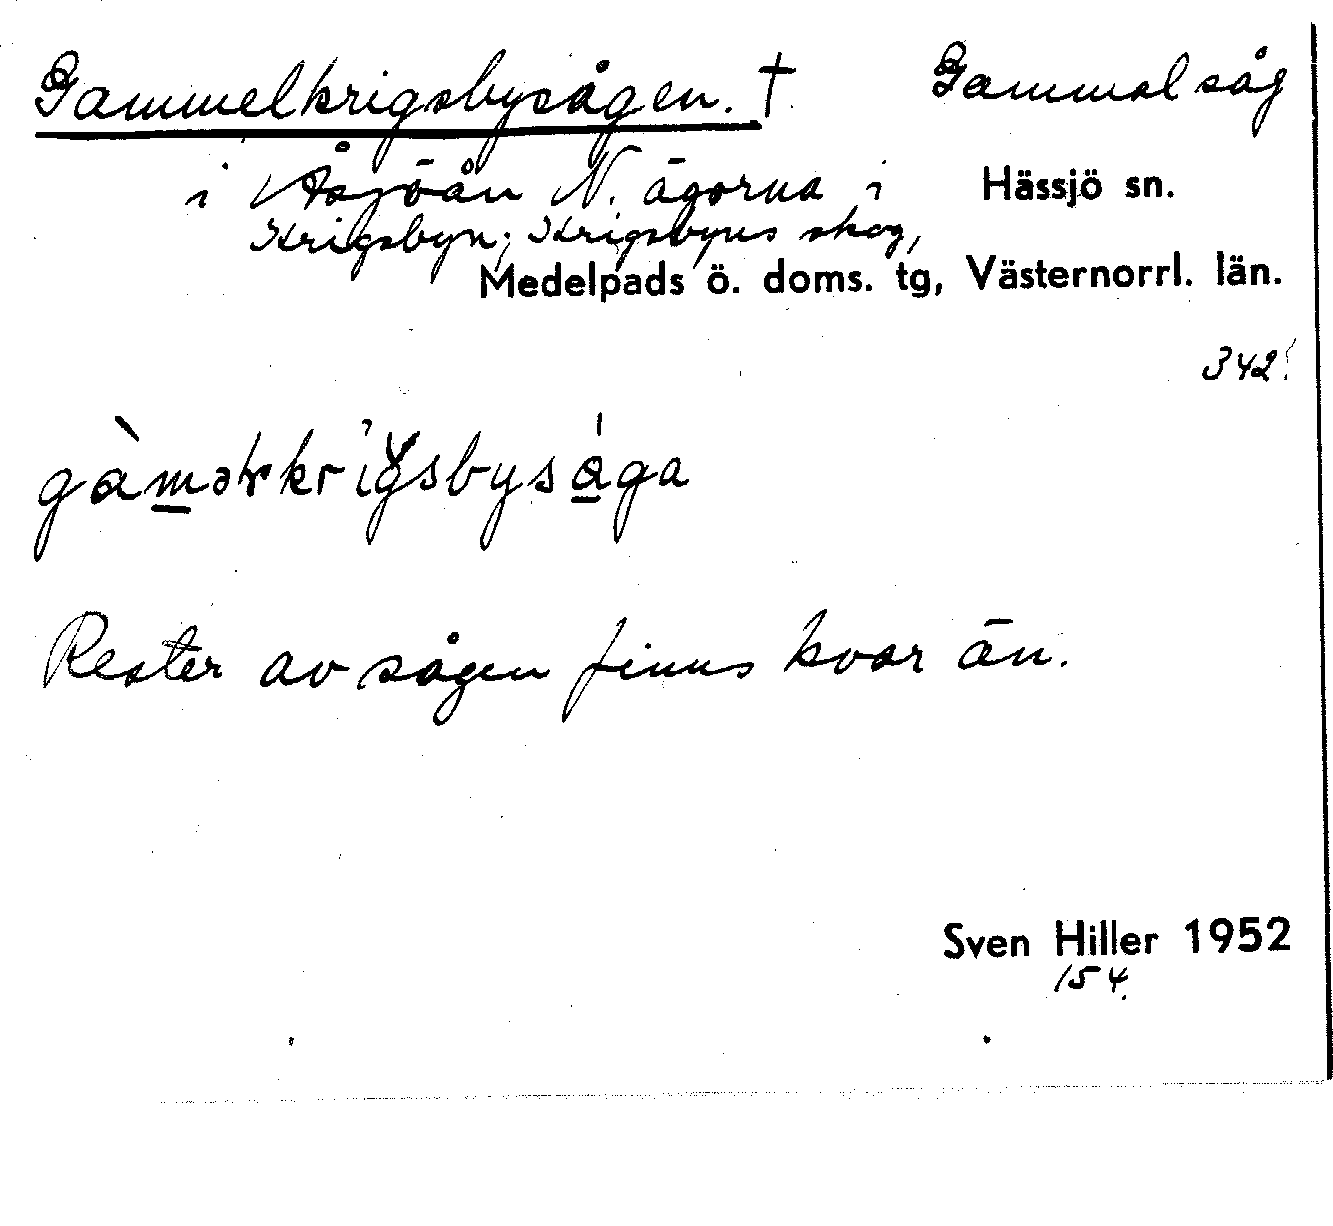 Gammelkrigsbysågen. † Gammal såg
i Åsjöån N. ägorna i Hässjö sn.
Krigsbyn; Krigsbyns skog,
Medelpads ö. doms. tg, Västernorrl. län.
342
Rester av sågen finns kvar än.
Sven Hiller 1952
154.